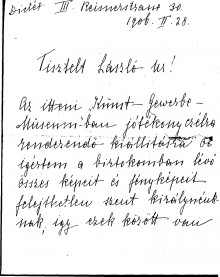 III. Reisnerstrasse 30.
1906. II. 28.
Tisztelt László ur!
Az ittoni Kunst-Gewerbe-
Museum'ban jótékony czélra
rendezendő kiállításra
igértem a birtokomban lévő
összes képeit és fényképeit
felejthetlen szent királynénk-
nak, így ezek között van